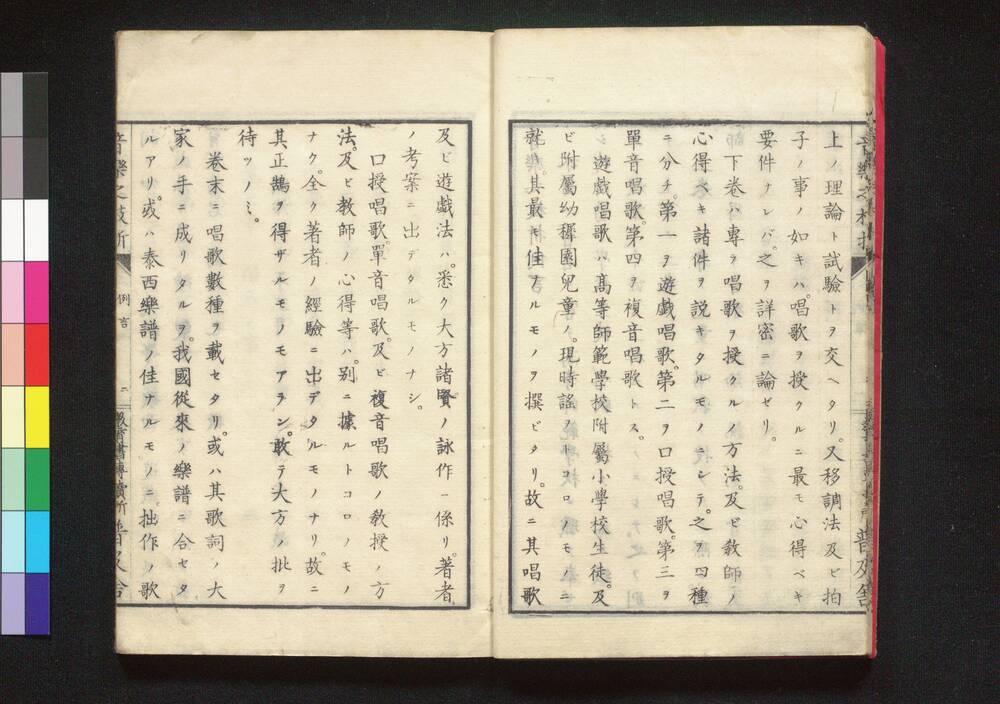 上ノ理論ト試驗トヲ交ヘタリ。又移調法及ビ拍
子ノ事ノ如キハ。唱歌ヲ授クルニ最モ心得ベキ
要件ナレバ。之ヲ詳密ニ論ゼリ。
下巻ハ專ラ唱歌ヲ授クルノ方法。及ビ教師ノ
心得ベキ諸件ヲ説キタルモノニシテ。之ヲ四種
ニ分チ。第一ヲ遊戯唱歌。第二ヲ口授唱歌。第三ヲ
單音唱歌。第四ヲ複音唱歌トス。
遊戯唱歌ハ高等師範學校附屬小學校生徒。及
ビ附屬幼穉園兒童ノ。現時謡フトコロノモノニ
就キ。其最モ佳ナルモノヲ撰ビタリ。故ニ其唱歌
及ビ遊戯法ハ。悉ク大方諸賢ノ詠作ニ係リ。著者
ノ考案ニ出デタルモノナシ。
口授唱歌。單音唱歌。及ビ複音唱歌ノ教授ノ方
法。及ビ教師ノ心得等ハ。別ニ據ルトコロノモノ
ナク。全ク著者ノ經驗ニ出デタルモノナリ。故ニ
其正鵠ヲ得ザルモノモアラン。敢テ大方ノ批ヲ
待ツノミ。
卷末ニ唱歌數種ヲ載セタリ。或ハ其歌詞ノ大
家ノ手ニ成リタルヲ。我國從來ノ樂譜ニ合セタ
ルアリ。或ハ泰西樂譜ノ佳ナルモノニ。拙作ノ歌
音樂之枝折
例言
二
普及舍